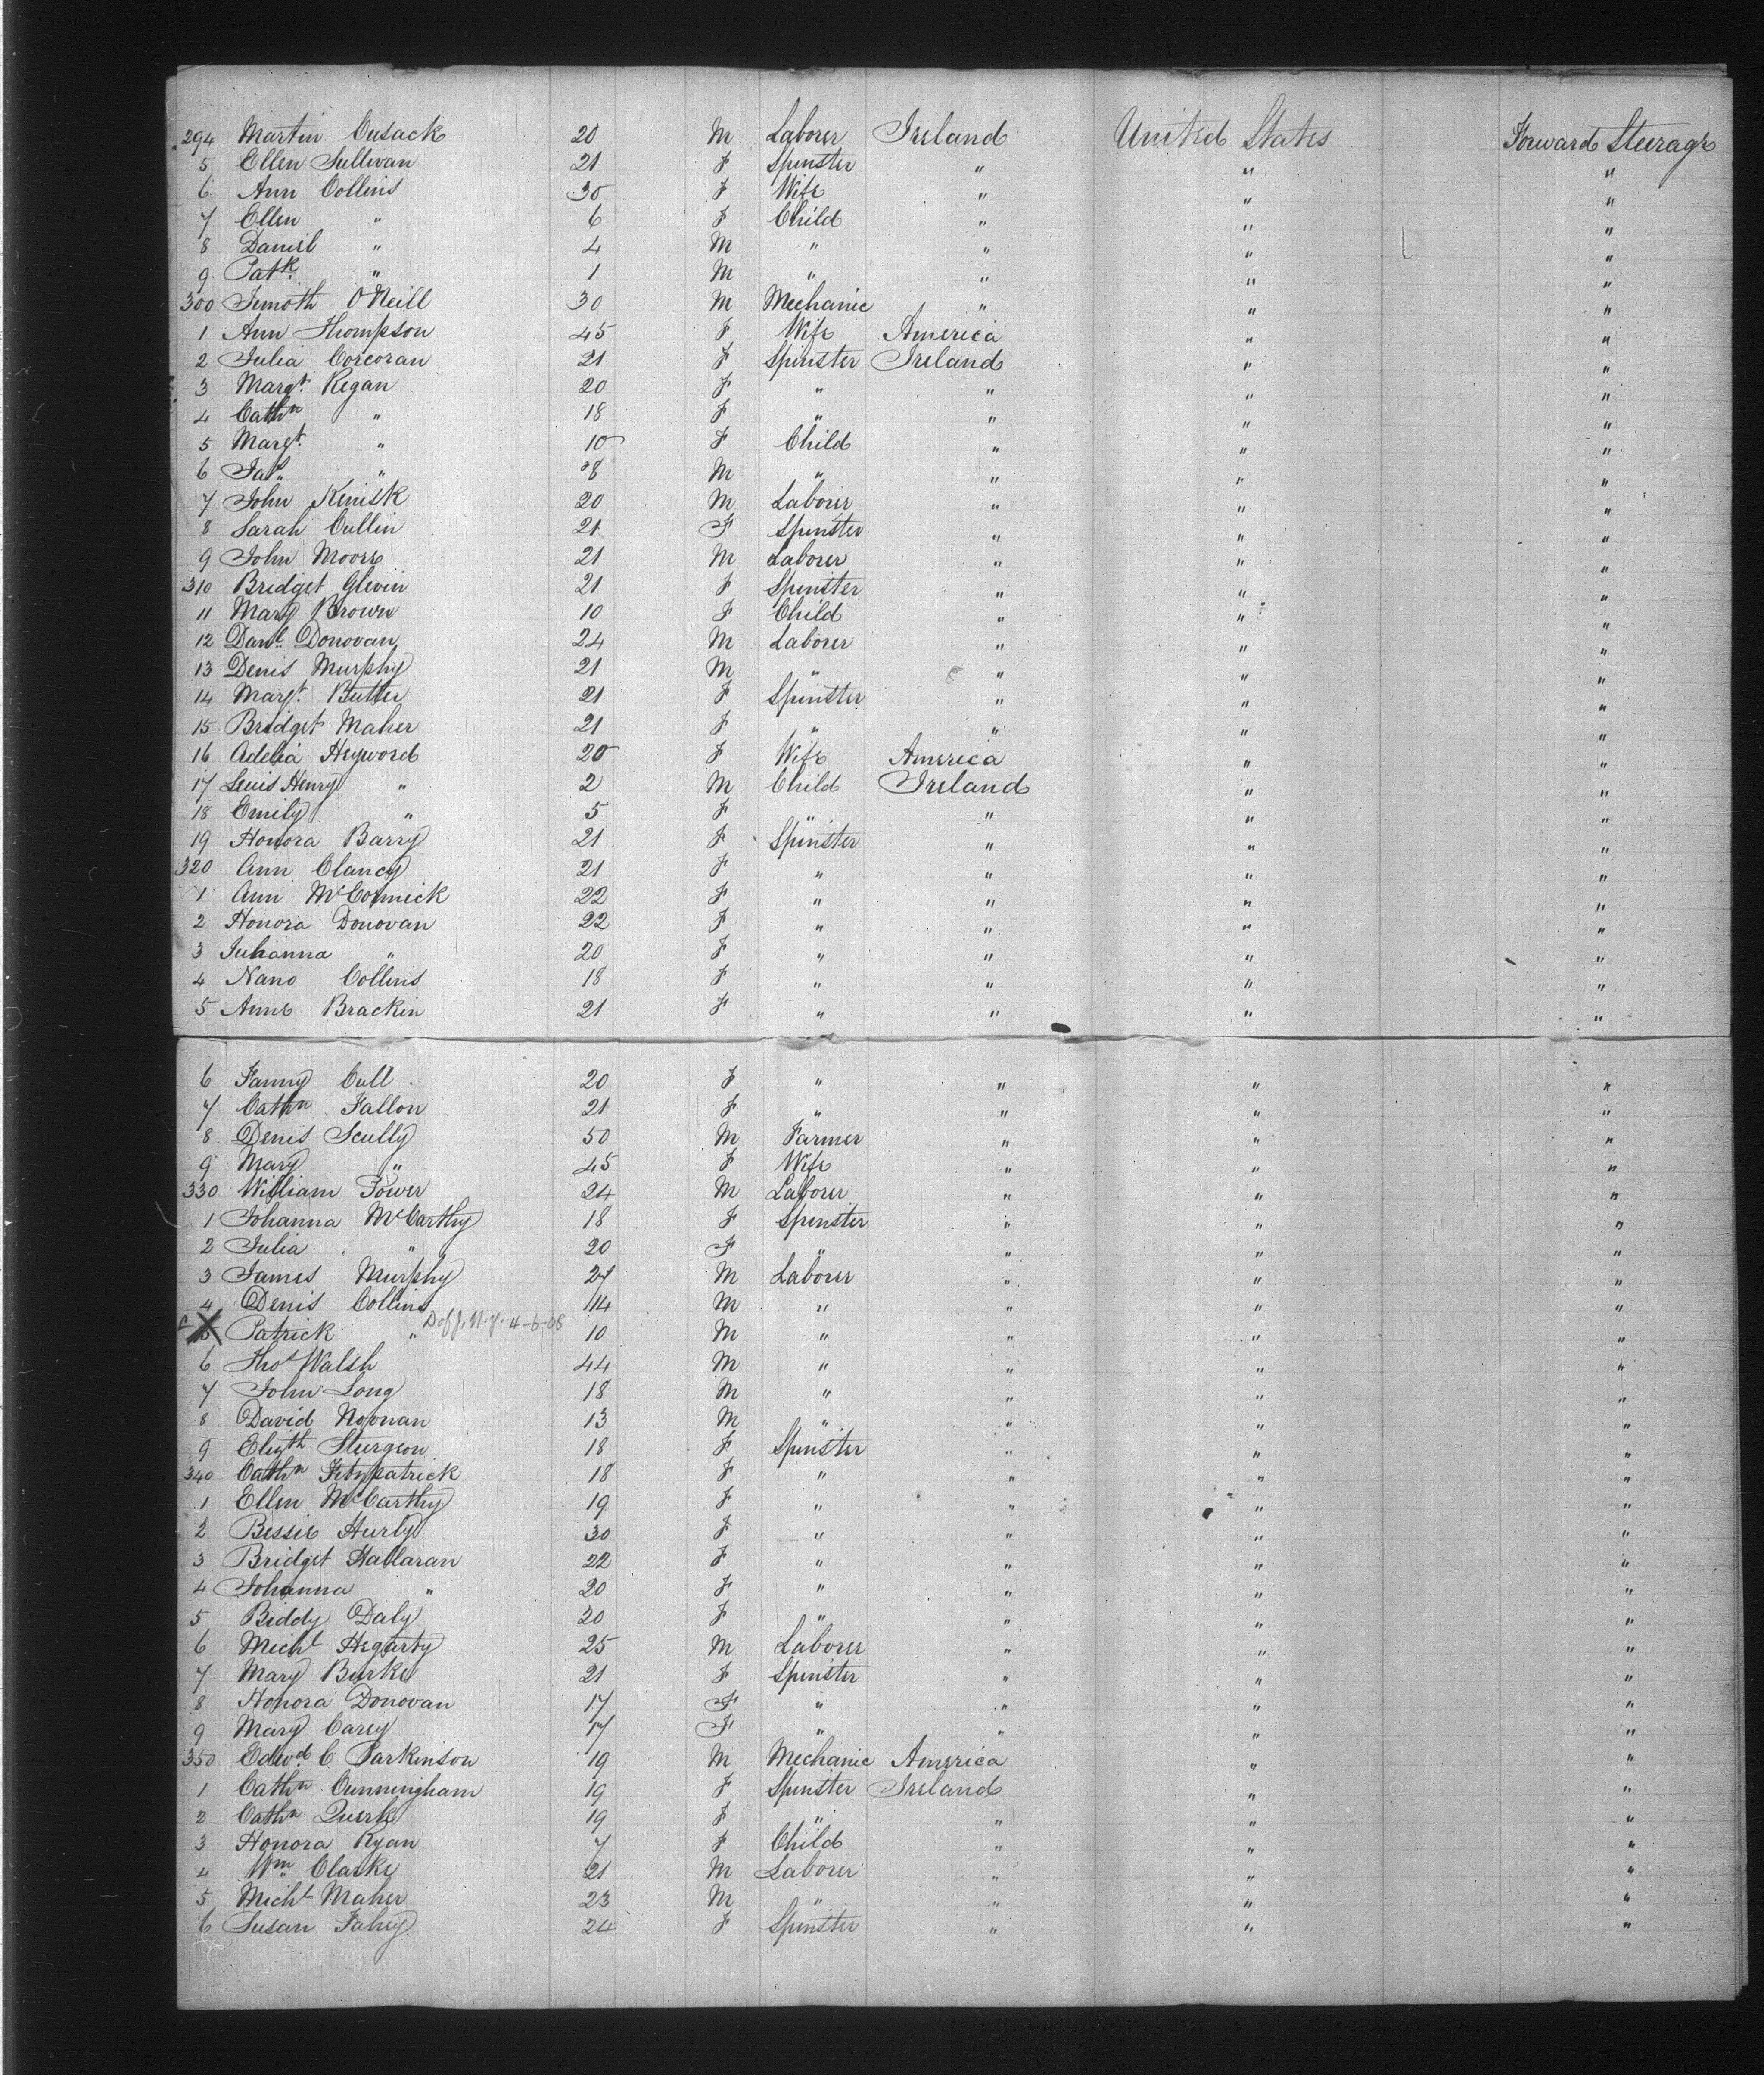 294 Martin Cusack 20 M Laborer Ireland United States Forward Steerage
5 Ellen Sullivan 21 F Spinster " " "
6 Ann Collins 30 F Wife " " "
7 Ellen " 6 F Child " " "
8 Daniel " 4 M " " " "
9 Patk. " 1 M " " " "
300 Timoth O'Neill 30 M Mechanic " " "
1 Ann Thompson 45 F Wife America " "
2 Julia Corcoran 21 F Spinster Ireland " "
3 Margt. Regan 20 F " " " "
4 Cathn " 18 F " " " "
5 Margt. " 10 F Child " " "
6 Jas. " 8 M " " " "
7 John Kenisk 20 M Laborer " " "
8 Sarah Cullin 21 F Spinster " " "
9 John Moore 21 M Laborer " " "
310 Bridget Glevin 21 F Spinster " " "
11 Mary Brown 10 F Child " " "
12 Danl. Donovan 24 M Laborer " " "
13 Denis Murphy 21 M " " " "
14 Margt. Butler 21 F Spinster " " "
15 Bridget Maher 21 F " " " "
16 Adelia Heyword 20 F Wife America " "
17 Lewis Henry " 2 M Child Ireland " "
18 Emily " 5 F " " " "
19 Honora Barry 21 F Spinster " " "
320 Ann Clancy 21 F " " " "
1 Ann McCormick 22 F " " " "
2 Honora Donovan 22 F " " " "
3 Juhanna " 20 F " " " "
4 Nano Collins 18 F " " " "
5 Anne Brackin 21 F " " " "
6 Fanny Cull 20 F " " " "
7 Cathn Fallon 21 F " " " "
8 Denis Scully 50 M Farmer " " "
9 Mary " 45 F Wife " " "
330 William Power 24 M Laborer " " "
1 Johanna McCarthy 18 F Spinster " " "
2 Julia " 20 F " " " "
3 James Murphy 27 M Laborer " " "
4 Denis Collins 14 M " " " "
5 Patrick " D of J. N.Y. 4-6-08 10 M " " " "
6 Thos Walsh 44 M " " " "
7 John Long 18 M " " " "
8 David Noonan 13 M " " " "
9 Elizth Sturgeon 18 F Spinster " " "
340 Cathn Fitzpatrick 18 F " " " "
1 Ellen McCarthy 19 F " " " "
2 Bessie Hurly 30 F " " " "
3 Bridget Hallaran 22 F " " " "
4 Johanna " 20 F " " " "
5 Biddy Daly 20 F " " " "
6 Michl Hegarty 25 M Laborer " " "
7 Mary Burke 21 F Spinster " " "
8 Honora Donovan 17 F " " " "
9 Mary Carey 17 F " " " "
350 Edwd. C Parkinson 19 M Mechanic America " "
1 Cathn Cunningham 19 F Spinster Ireland " "
2 Cathn Querk 19 F " " " "
3 Honora Ryan 7 F Child " " "
4 Wm Clarke 21 M Laborer " " "
5 Michl Maher 23 M " " " "
6 Susan Fahey 24 F Spinster " " "